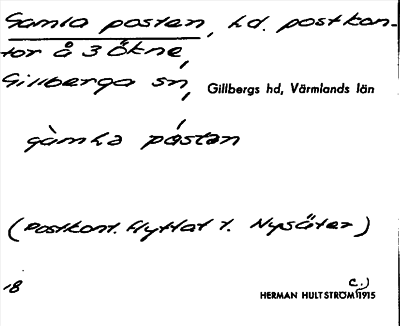 Gamla posten, hd. postkon-
tor å 3 Ökne,
Gillberga sn, Gillbergs hd, Värmlands län
gàmla pástan
(Postkont. flyttat t. Nysäter)
18 c.)
HERMAN HULTSTRÖM 1915